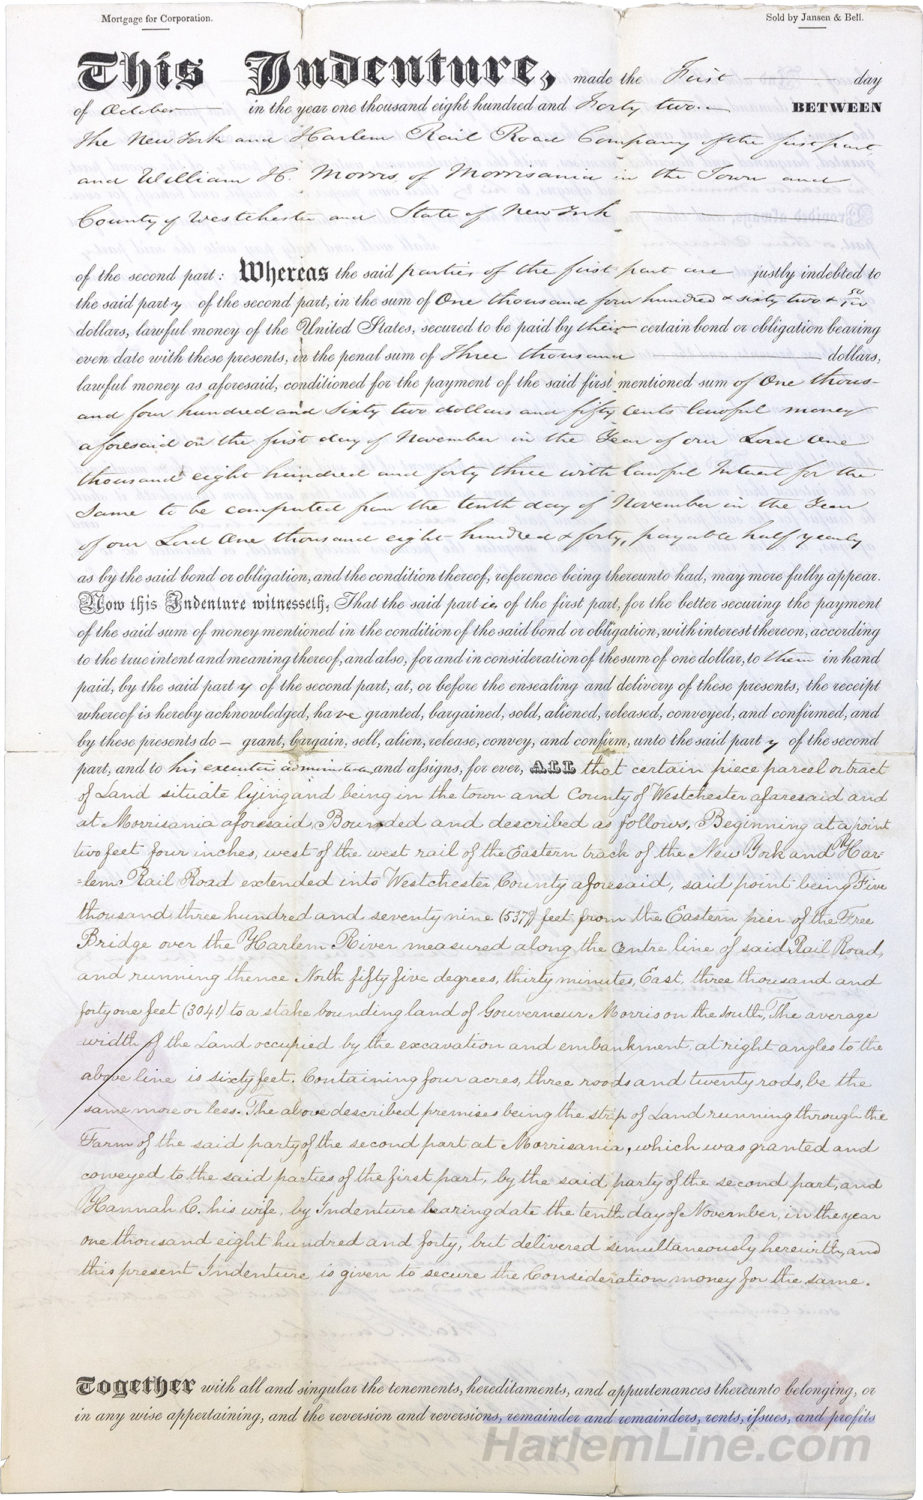 Mortgage for Corporation.
Sold by Jansen & Bell.
This Indenture, made the First day
of October in the year one thousand eight hundred and Forty two. BETWEEN
The New York and Harlem Rail Road Company of the first part
and William H. Morris, of Morrisania in the Town and
County of Westchester and State of New York
of the second part: Whereas the said parties of the first part are justly indebted to
the said party of the second part, in the sum of One thousand four hundred & sixty two & 50/100
dollars, lawful money of the United States, secured to be paid by their certain bond or obligation bearing
even date with these presents, in the penal sum of Three thousand dollars,
lawful money as aforesaid, conditioned for the payment of the said first mentioned sum of One thous-
and four hundred and sixty two dollars and fifty cents lawful money
aforesaid on the first day of November in the Year of our Lord One
thousand eight hundred and forty three with lawful Interest for the
Same to be computed from the tenth day of November in the Year
of our Lord One thousand eight hundred & forty, payable half yearly
as by the said bond or obligation, and the condition thereof, reference being thereunto had, may more fully appear.
Now this Indenture witnesseth, That the said parties of the first part, for the better securing the payment
of the said sum of money mentioned in the condition of the said bond or obligation, with interest thereon, according
to the true intent and meaning thereof, and also, for and in consideration of the sum of one dollar, to them in hand
paid, by the said party of the second part, at, or before the ensealing and delivery of these presents, the receipt
whereof is hereby acknowledged, have granted, bargained, sold, aliened, released, conveyed, and confirmed, and
by these presents do – grant, bargain, sell, alien, release, convey, and confirm, unto the said party of the second
part, and to his executors administrators and assigns, for ever, ALL that certain piece parcel or tract
of Land situate lying and being in the town and County of Westchester aforesaid and
at Morrisania aforesaid, Bounded and described as follows, Beginning at a point
two feet four inches, west of the west rail of the Eastern track of the New York and Har-
-lem Rail Road extended into Westchester County aforesaid, said point being Five
thousand three hundred and seventy nine (5379) feet from the Eastern pier of the Free
Bridge over the Harlem River measured along the centre line of said Rail Road,
and running thence North fifty five degrees, thirty minutes, East, three thousand and
forty one feet (3041) to a stake bounding land of Gouverneur Morris on the south, The average
width of the Land occupied by the excavation and embankment, at right angles to the
above line is sixty feet. Containing four acres, three roods and twenty rods, be the
same more or less. The above described premises being the strip of Land running through the
Farm of the said party of the second part at Morrisania, which was granted and
conveyed to the said parties of the first part, by the said party of the second part, and
Hannah C. his wife, by Indenture bearing date the tenth day of November, in the year
one thousand eight hundred and forty, but delivered simultaneously herewith, and
this present Indenture is given to secure the Consideration money for the same.
Together with all and singular the tenements, hereditaments, and appurtenances thereunto belonging, or
in any wise appertaining, and the reversion and reversions, remainder and remainders, rents, issues, and profits
HarlemLine.com